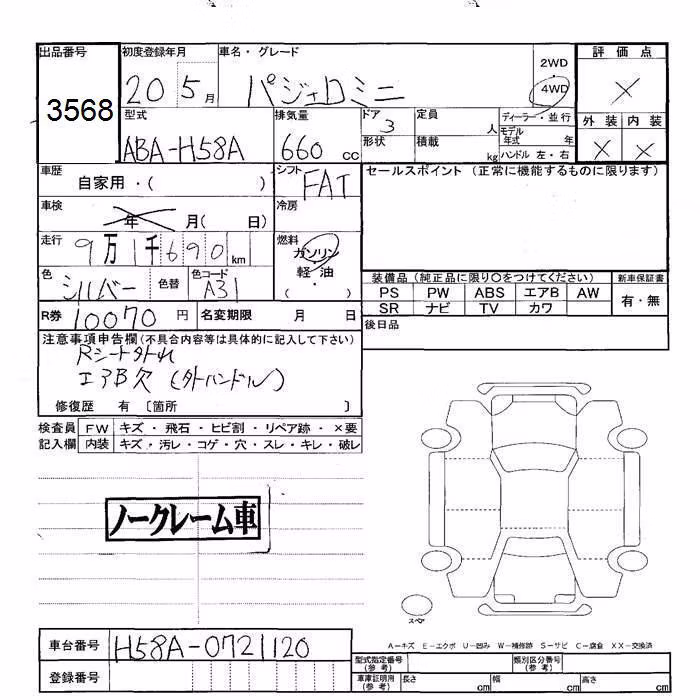 出品番号
3568
初度登録年月
20 5月
車名・グレード
パジェロミニ
2WD
4WD
評価点
×
型式
ABA-H58A
排気量
660 cc
ドア
3
形状
定員
人
積載
kg
ディーラー・並行
モデル年式 年
ハンドル 左・右
外装 内装
× ×
車歴
自家用・( )
シフト
FAT
セールスポイント (正常に機能するものに限ります)
車検
年 月( 日)
冷房
走行
9万1千690km
燃料
ガソリン
軽油
( )
色
シルバー
色替
色コード
A31
装備品 (純正品に限り〇をつけてください)
新車保証書
PS PW ABS エアB AW
SR ナビ TV カワ
有・無
R券 10070円
名変期限 月 日
後日品
注意事項申告欄 (不具合内容等は具体的に記入して下さい)
Rシート外れ
エアB欠 (外ハンドル)
修復歴 有 〔箇所 〕
検査員記入欄
FW キズ・飛石・ヒビ割・リペア跡・×要
内装 キズ・汚レ・コゲ・穴・スレ・キレ・破レ
ノークレーム車
スペア
A-キズ E-エクボ U-凹み W-補修跡 S-サビ C-腐食 XX-交換済
車台番号
H58A-0721120
登録番号
型式指定番号(参考)
類別区分番号(参考)
車庫証明用(参考)
長さ cm 幅 cm 高さ cm